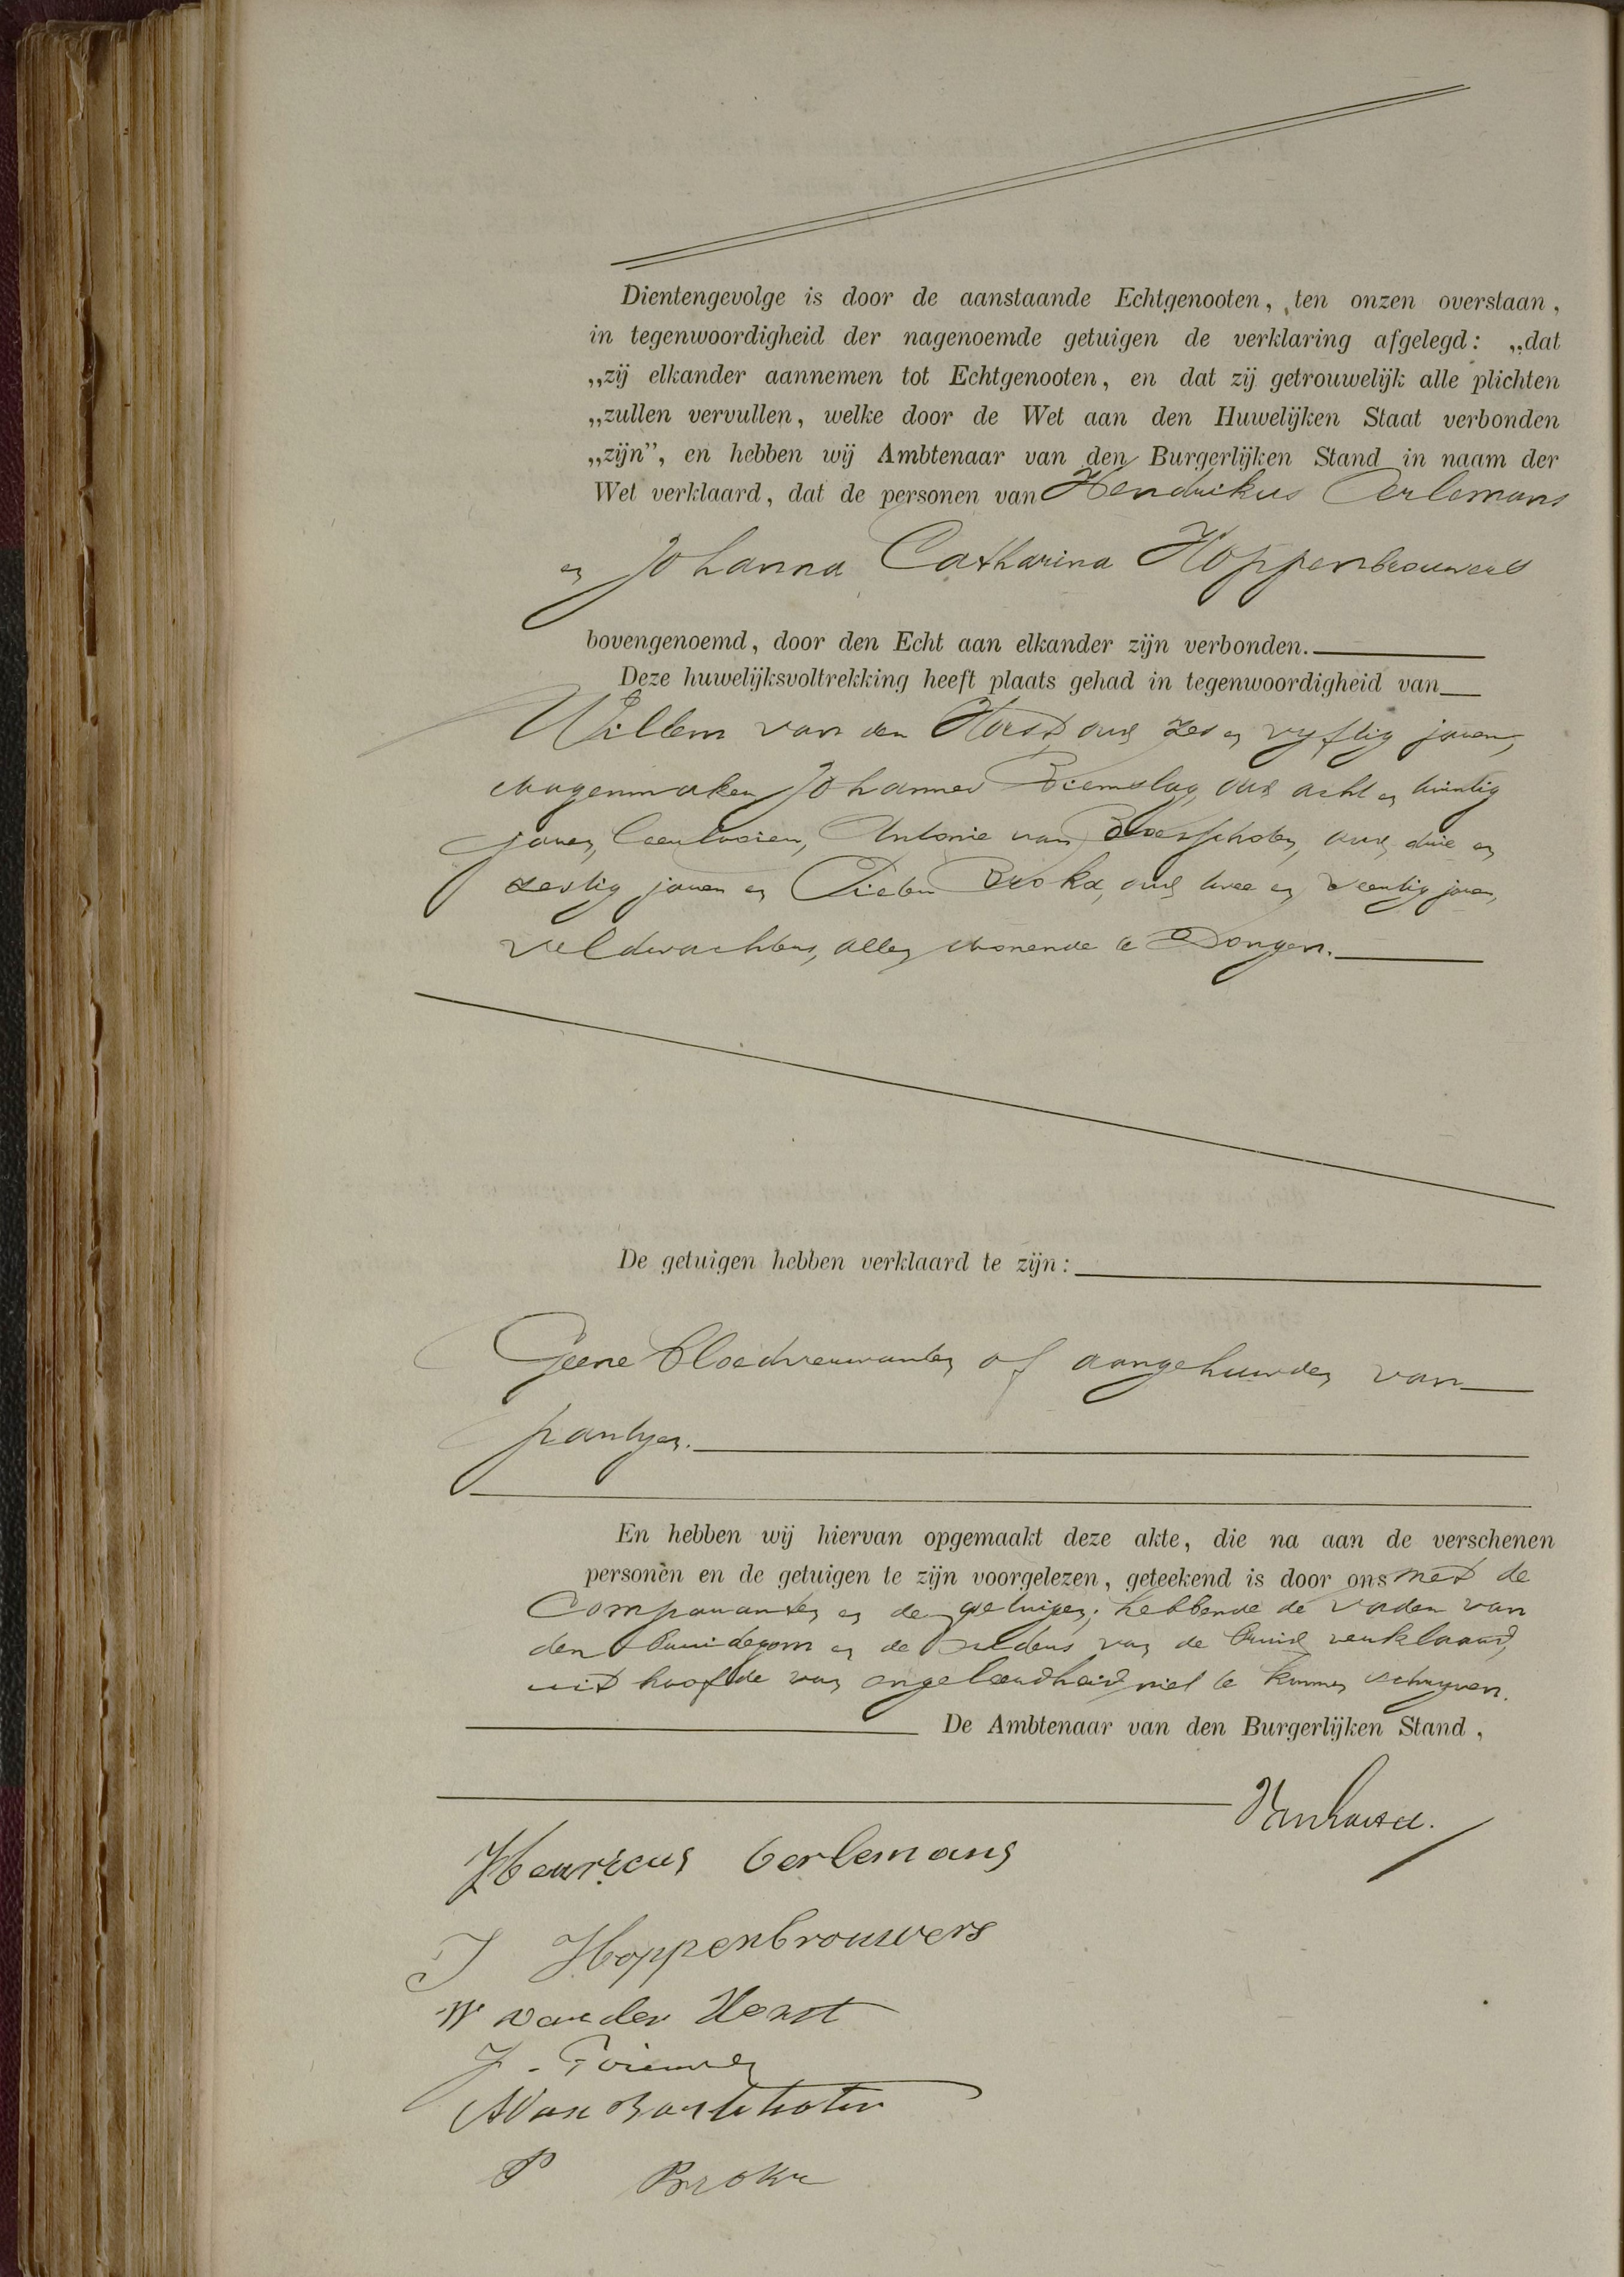 Dientengevolge is door de aanstaande Echtgenooten, ten onzen overstaan,
in tegenwoordigheid der nagenoemde getuigen de verklaring afgelegd: „dat
„zij elkander aannemen tot Echtgenooten, en dat zij getrouwelijk alle plichten
„zullen vervullen, welke door de Wet aan den Huwelijken Staat verbonden
„zijn”, en hebben wij Ambtenaar van den Burgerlijken Stand in naam der
Wet verklaard, dat de personen van Hendrikus Oerlemans
en Johanna Catharina Hoppenbrouwers
bovengenoemd, door den Echt aan elkander zijn verbonden.
Deze huwelijksvoltrekking heeft plaats gehad in tegenwoordigheid van
Willem van den Horst, oud zes en vyftig jaren,
wagenmaker, Johannes oud acht en twintig
jaren, leerlooier, Antonie van oud drie en
zestig jaren en Pieter Brokx, oud twee en veertig jaren,
veldwachters, allen wonende te Dongen.
De getuigen hebben verklaard te zijn:
Geene bloedverwanten of aangehuwden van
partyen.
En hebben wij hiervan opgemaakt deze akte, die na aan de verschenen
personen en de getuigen te zijn voorgelezen, geteekend is door ons met de
Comparanten en de getuigen; hebbende de vader van
den bruidegom en de ouders van de bruid verklaard,
uit hoofde van ongeleerdheid niet te kunnen schryven.
De Ambtenaar van den Burgerlijken Stand,
Henricus Oerlemans
J Hoppenbrouwers
W van der Horst
J.
A Van
P Brokx